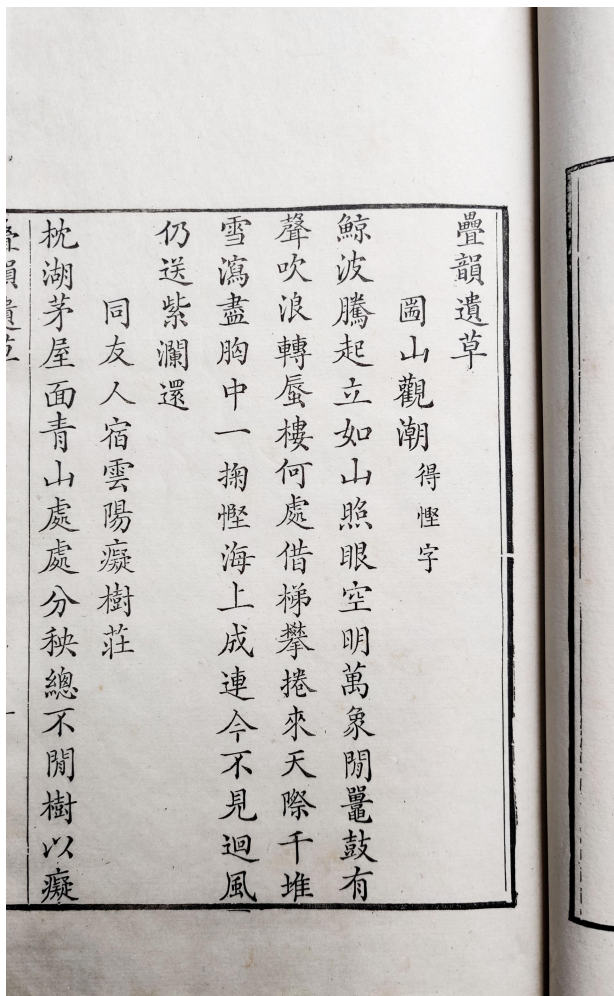 疊韻遺草
圌山觀潮 得慳字
鯨波騰起立如山照眼空明萬象閒鼉鼓有
聲吹浪轉蜃樓何處借梯攀捲來天際千堆
雪瀉盡胸中一掬慳海上成連今不見迴風
仍送紫瀾還
同友人宿雲陽癡樹莊
枕湖茅屋面青山處處分秧總不閒樹以癡
疊韻遺草